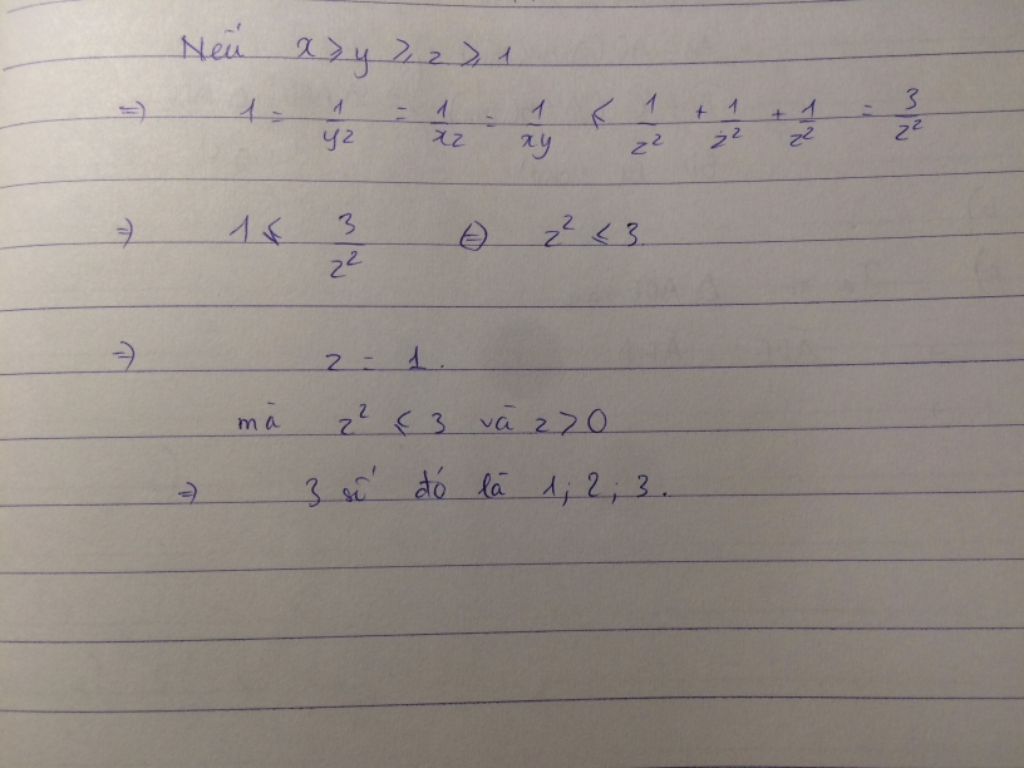 Nếu x ≥ y ≥ z ≥ 1
=> 1 = 1/yz = 1/xz = 1/xy ≤ 1/z² + 1/z² + 1/z² = 3/z²
=> 1 ≤ 3/z² <=> z² ≤ 3
=> z = 1.
mà z² ≤ 3 và z > 0
=> 3 số đó là 1; 2; 3.